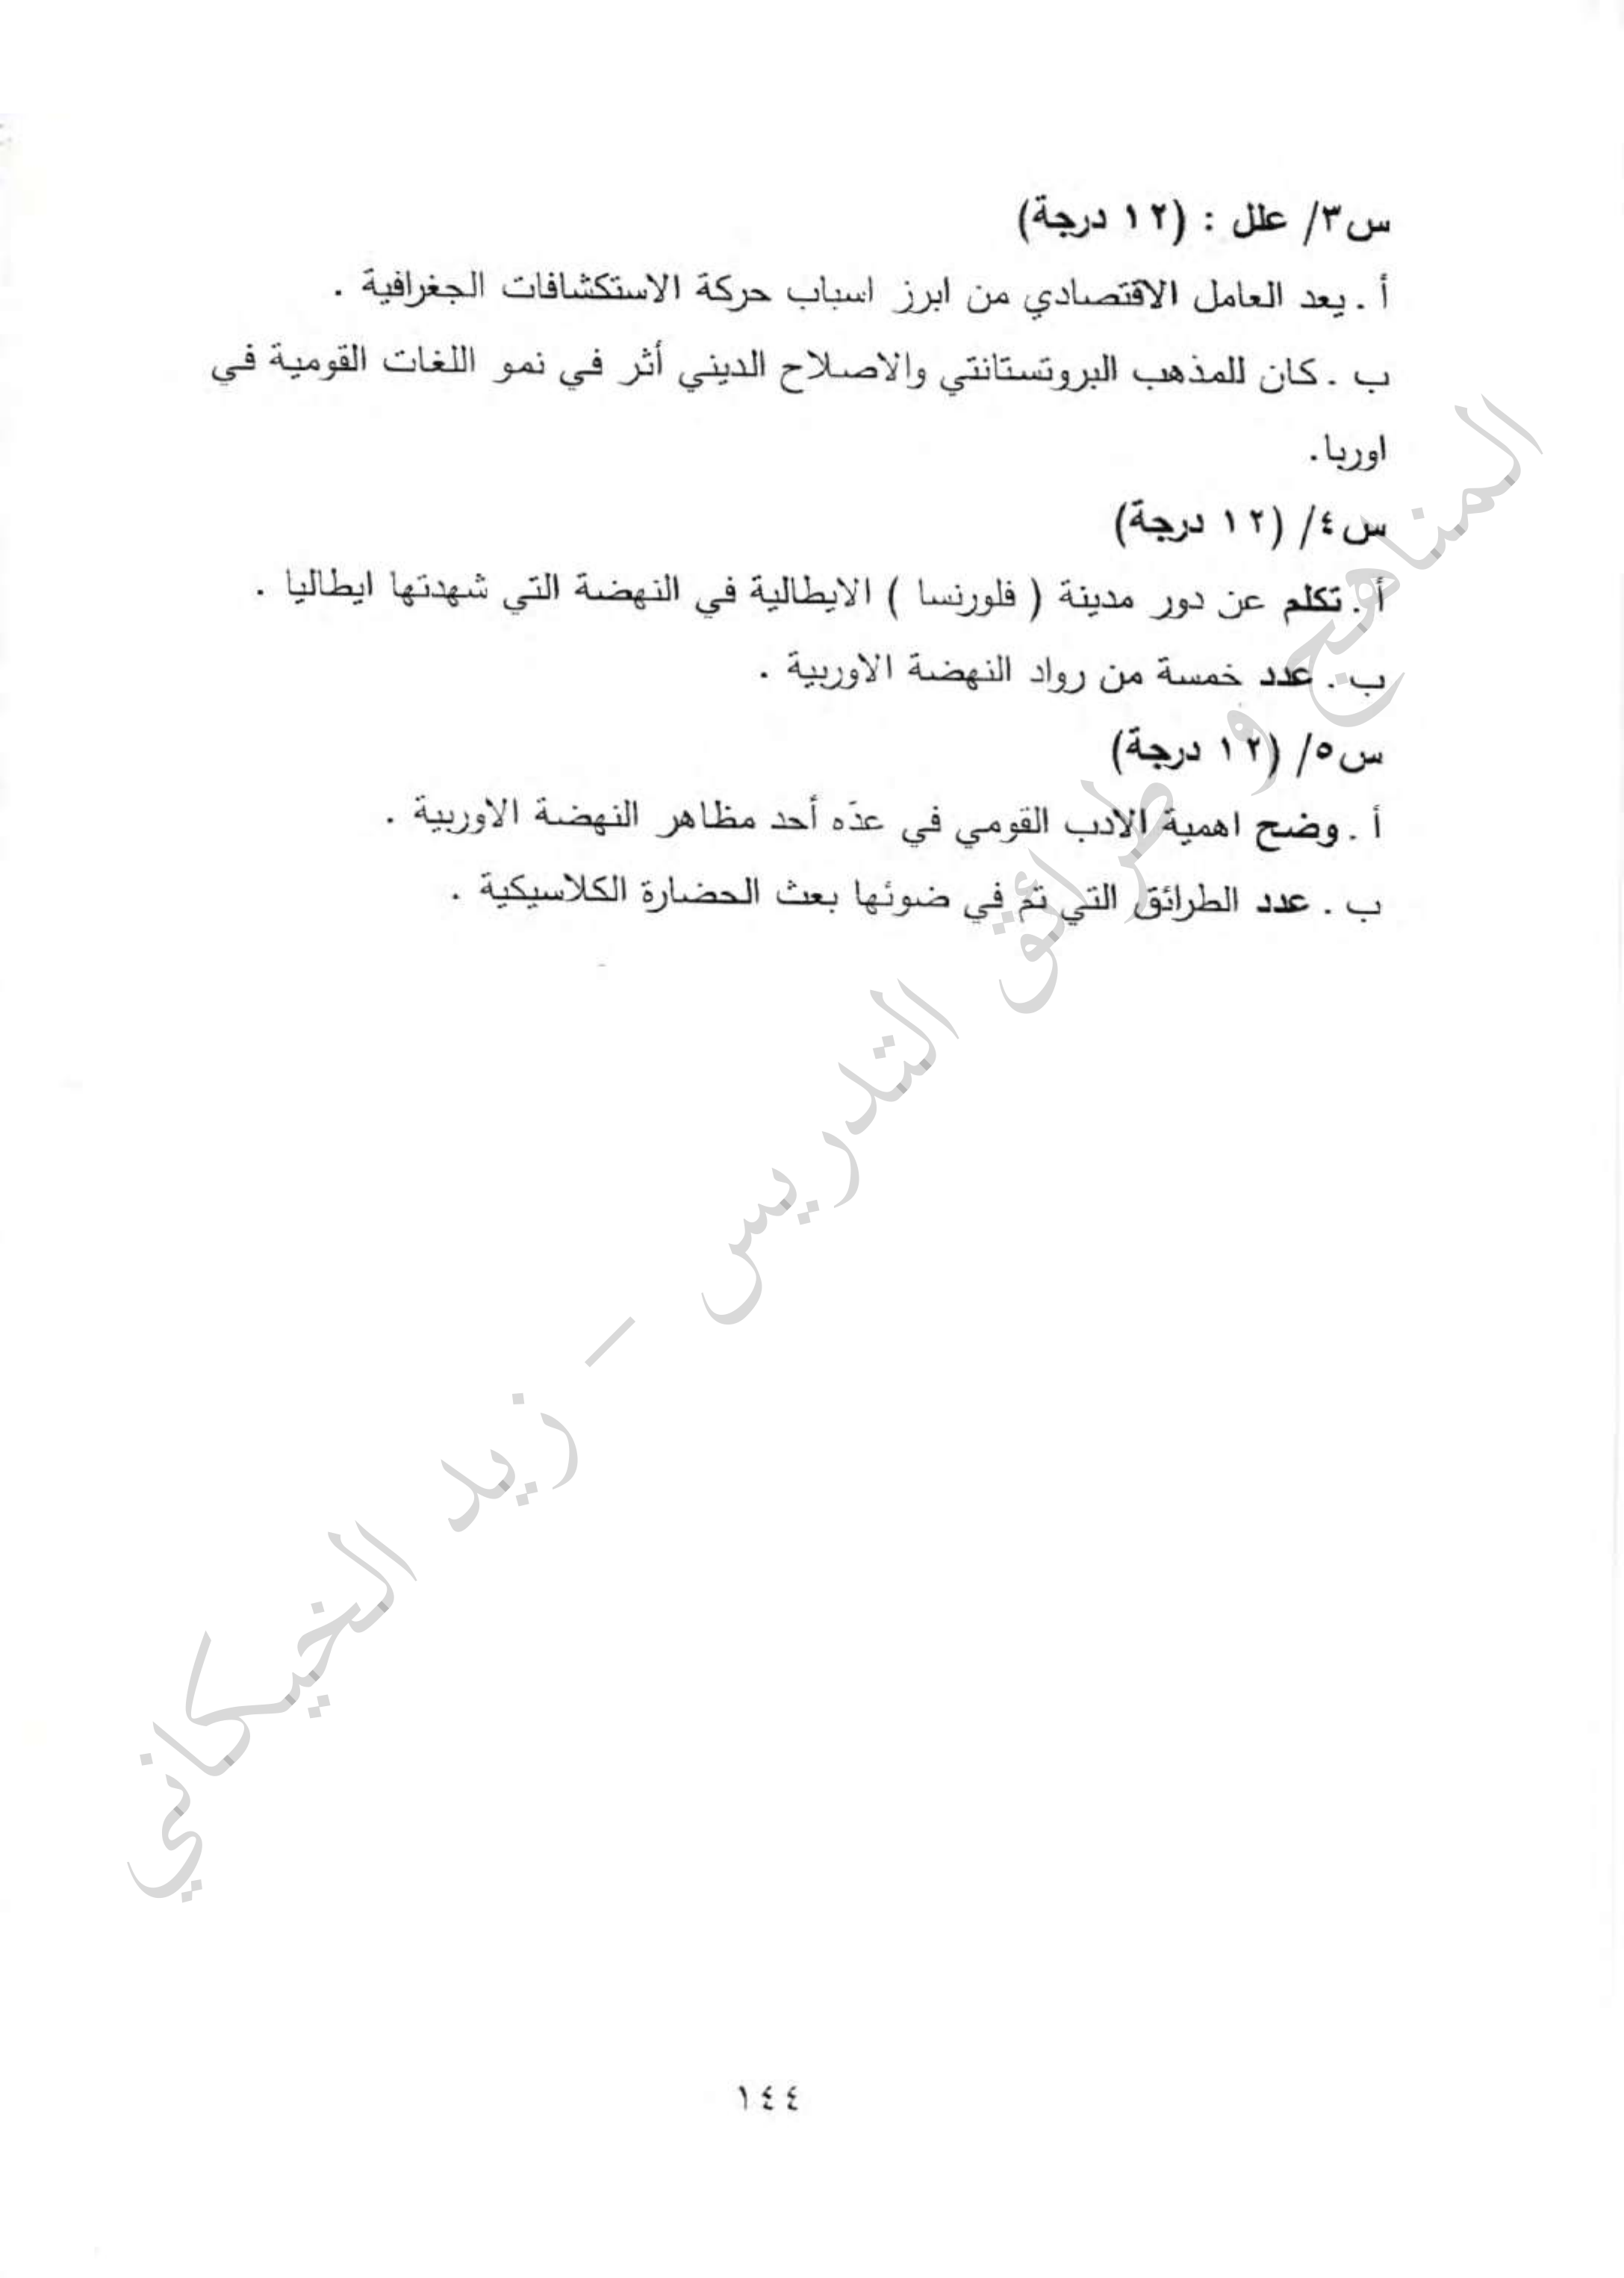 س٣/ علل : (١٢ درجة)
أ . يعد العامل الاقتصادي من ابرز اسباب حركة الاستكشافات الجغرافية .
ب . كان للمذهب البروتستانتي والاصلاح الديني أثر في نمو اللغات القومية في
اوربا.
س٤/ (١٢ درجة)
أ . تكلم عن دور مدينة ( فلورنسا ) الايطالية في النهضة التي شهدتها ايطاليا .
ب . عدد خمسة من رواد النهضة الاوربية .
س٥/ (١٢ درجة)
أ . وضح اهمية الادب القومي في عدّه أحد مظاهر النهضة الاوربية .
ب . عدد الطرائق التي تمّ في ضوئها بعث الحضارة الكلاسيكية .
المناهج و طرائق التدريس – زيد الخيكاني
١٤٤